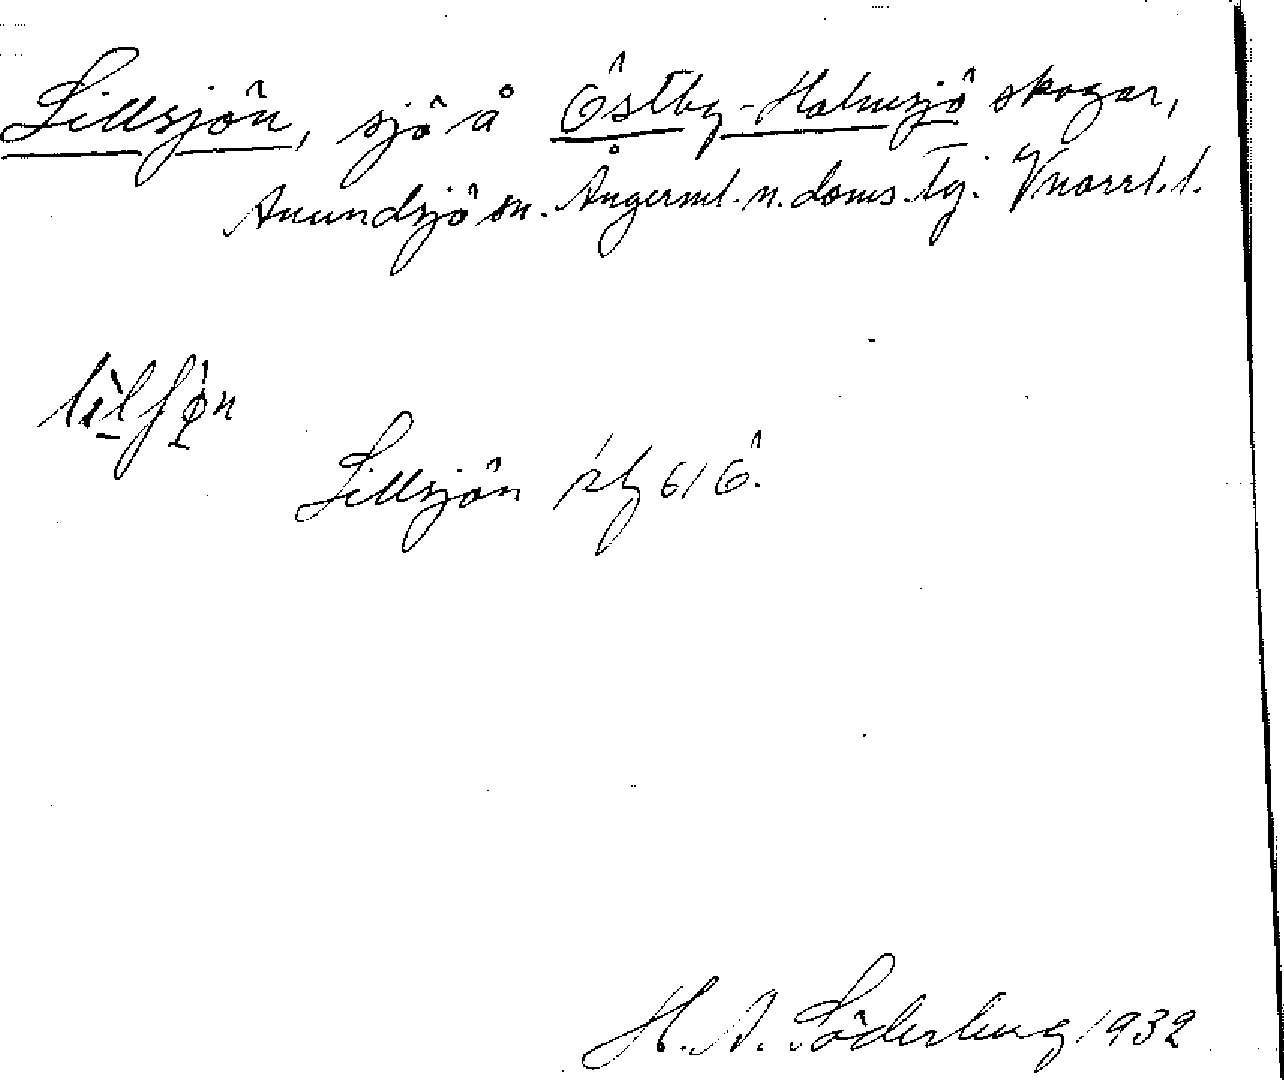 Lillsjön, sjö å Östby-Holmsjö skogar,
Anundsjö sn. Ångerml. n. doms. tg. Vnorrl. l.
Lillsjön rkg 61 Ö.
H. A. Söderberg 1932